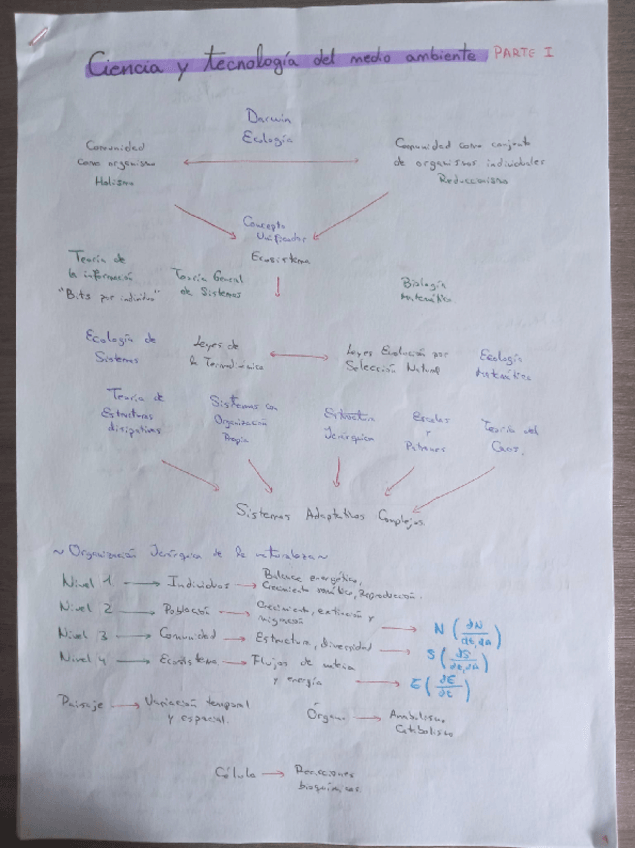 Ciencia y tecnología del medio ambiente PARTE I
Darwin
Ecología
Comunidad
como organismo
Holismo
Comunidad como conjunto
de organismos individuales
Reduccionismo
Concepto
Unificador
Ecosistema
Teoría de
la información
"Bits por individuo"
Teoría General
de Sistemas
Biología
Matemática
Ecología de
Sistemas
Leyes de
la Termodinámica
Leyes Evolución por
Selección Natural
Ecología
Matemática
Teoría de
Estructuras
disipativas
Sistemas con
Organización
Propia
Estructura
Jerárquica
Escalas
y
Patrones
Teoría del
Caos.
Sistemas Adaptativos Complejos.
~ Organización Jerárquica de la naturaleza ~
Nivel 1 → Individuos → Balance energético,
Crecimiento somático, Reproducción.
Nivel 2 → Población → Crecimiento, extinción y
migración → N (∂N/∂t,∂a)
Nivel 3 → Comunidad → Estructura, diversidad → S (∂S/∂t,∂a)
Nivel 4 → Ecosistema → Flujos de materia
y energía → E (∂E/∂t)
Paisaje → Variación temporal
y espacial.
Órgano → Anabolismo
Catabolismo
Célula → Reacciones
bioquímicas.